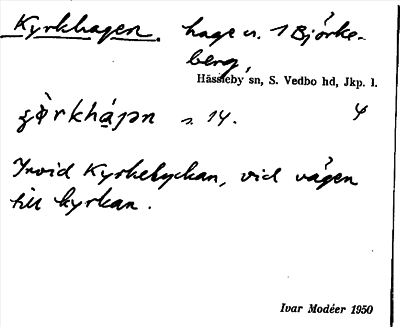 Kyrkhagen. hage u. 1 Björke-
berg,
Hässleby sn, S. Vedbo hd, Jkp. l.
s. 14. 4
Invid Kyrkelyckan, vid vägen
till kyrkan.
Ivar Modéer 1950